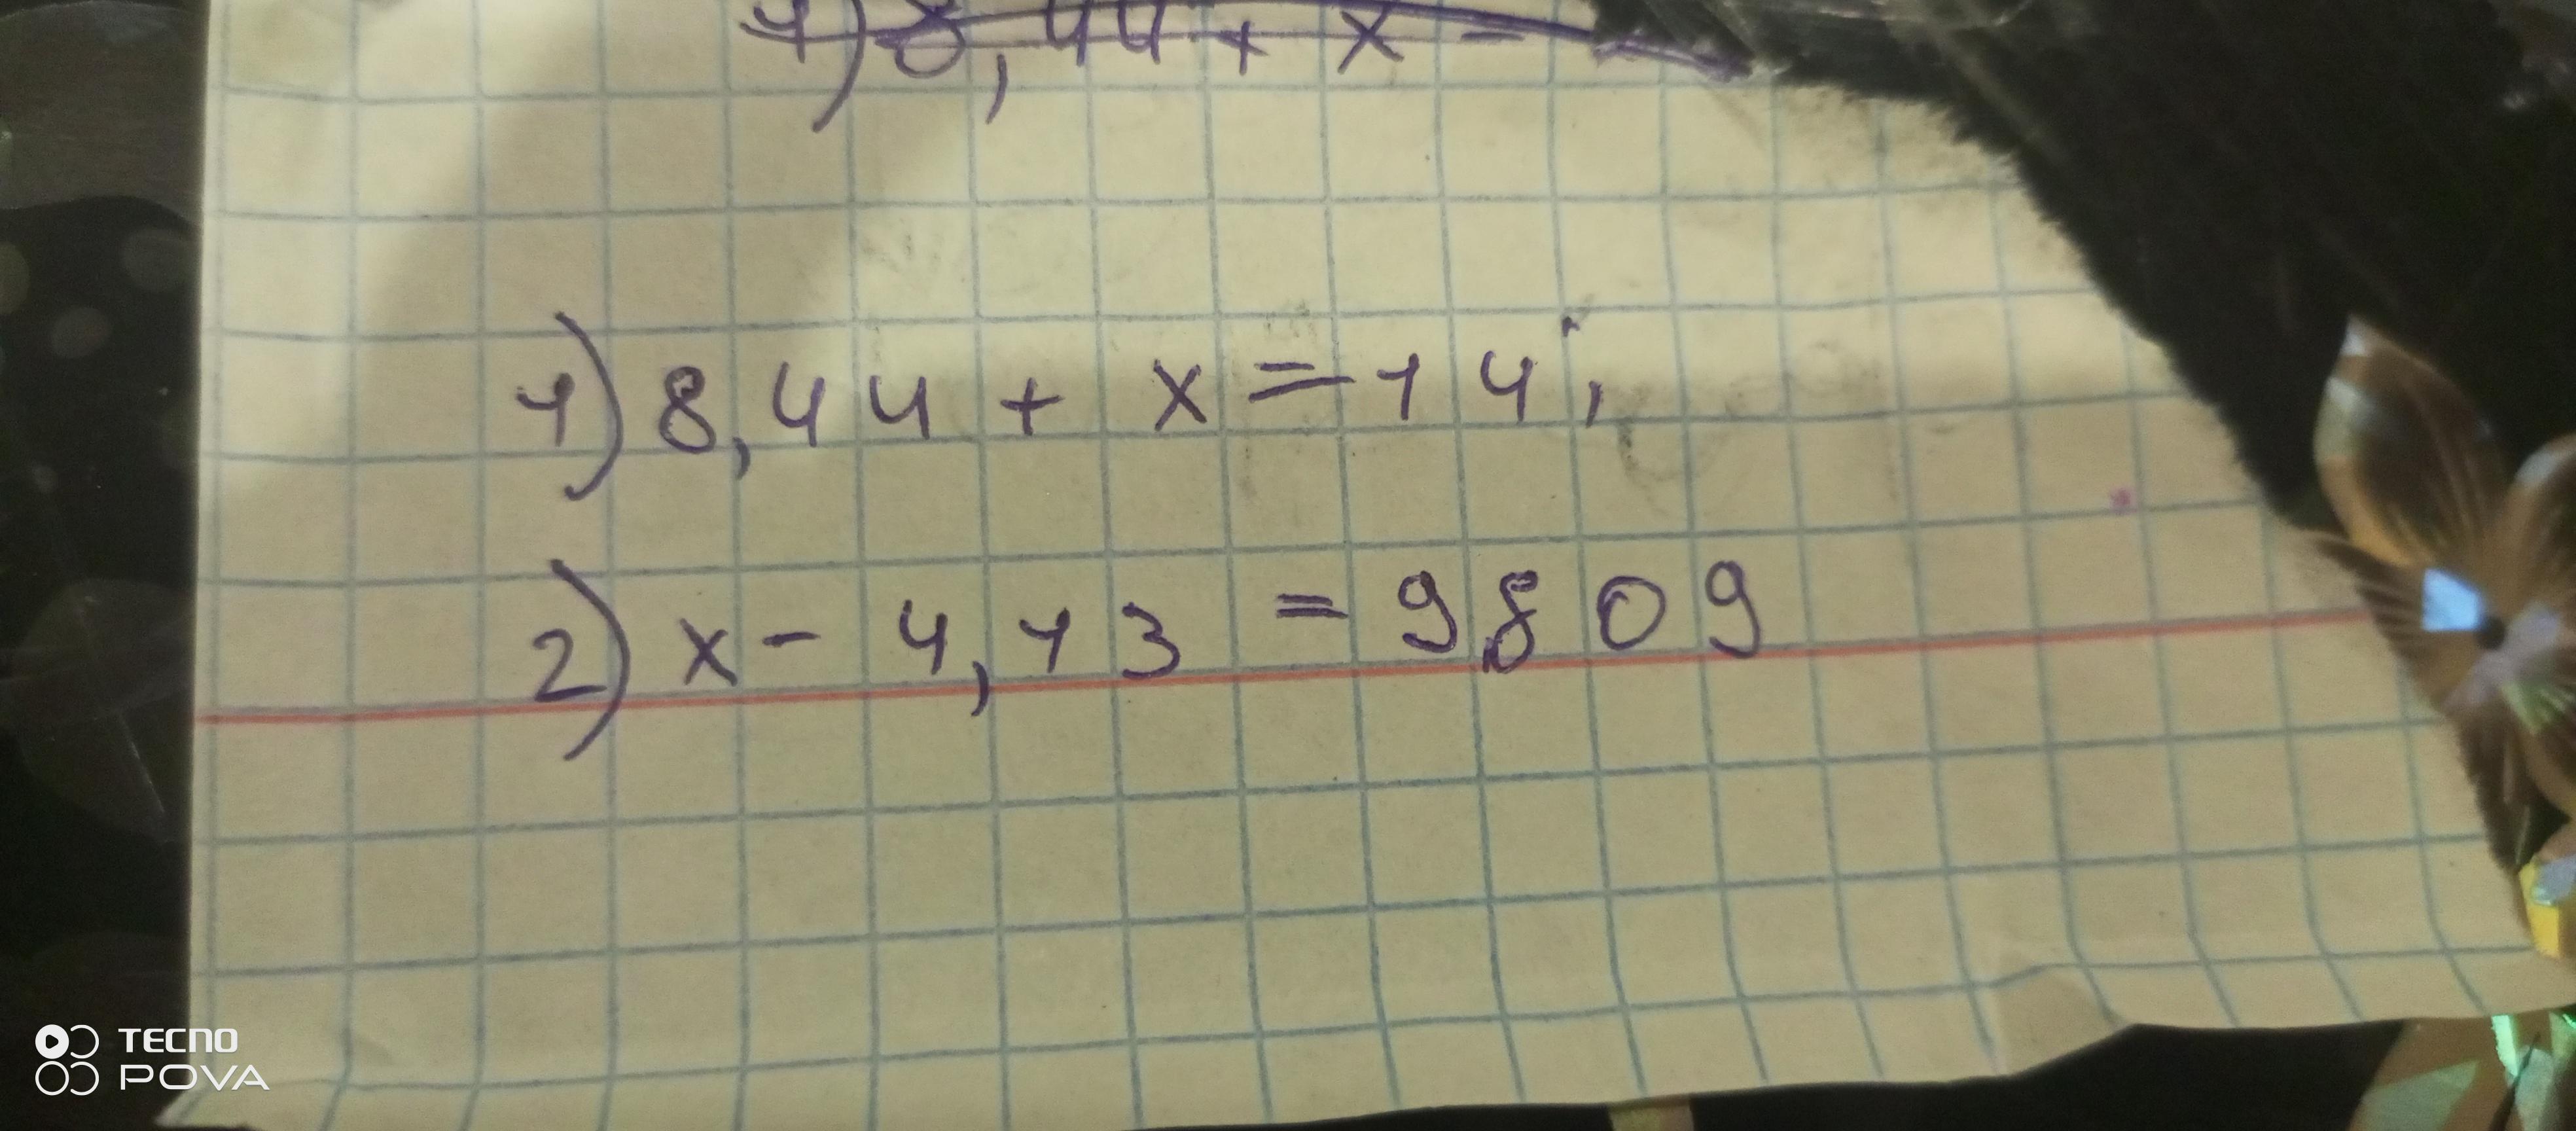 1) 8,44 + x =
1) 8,44 + x = 14;
2) x - 4,13 = 9,809
TECNO
POVA